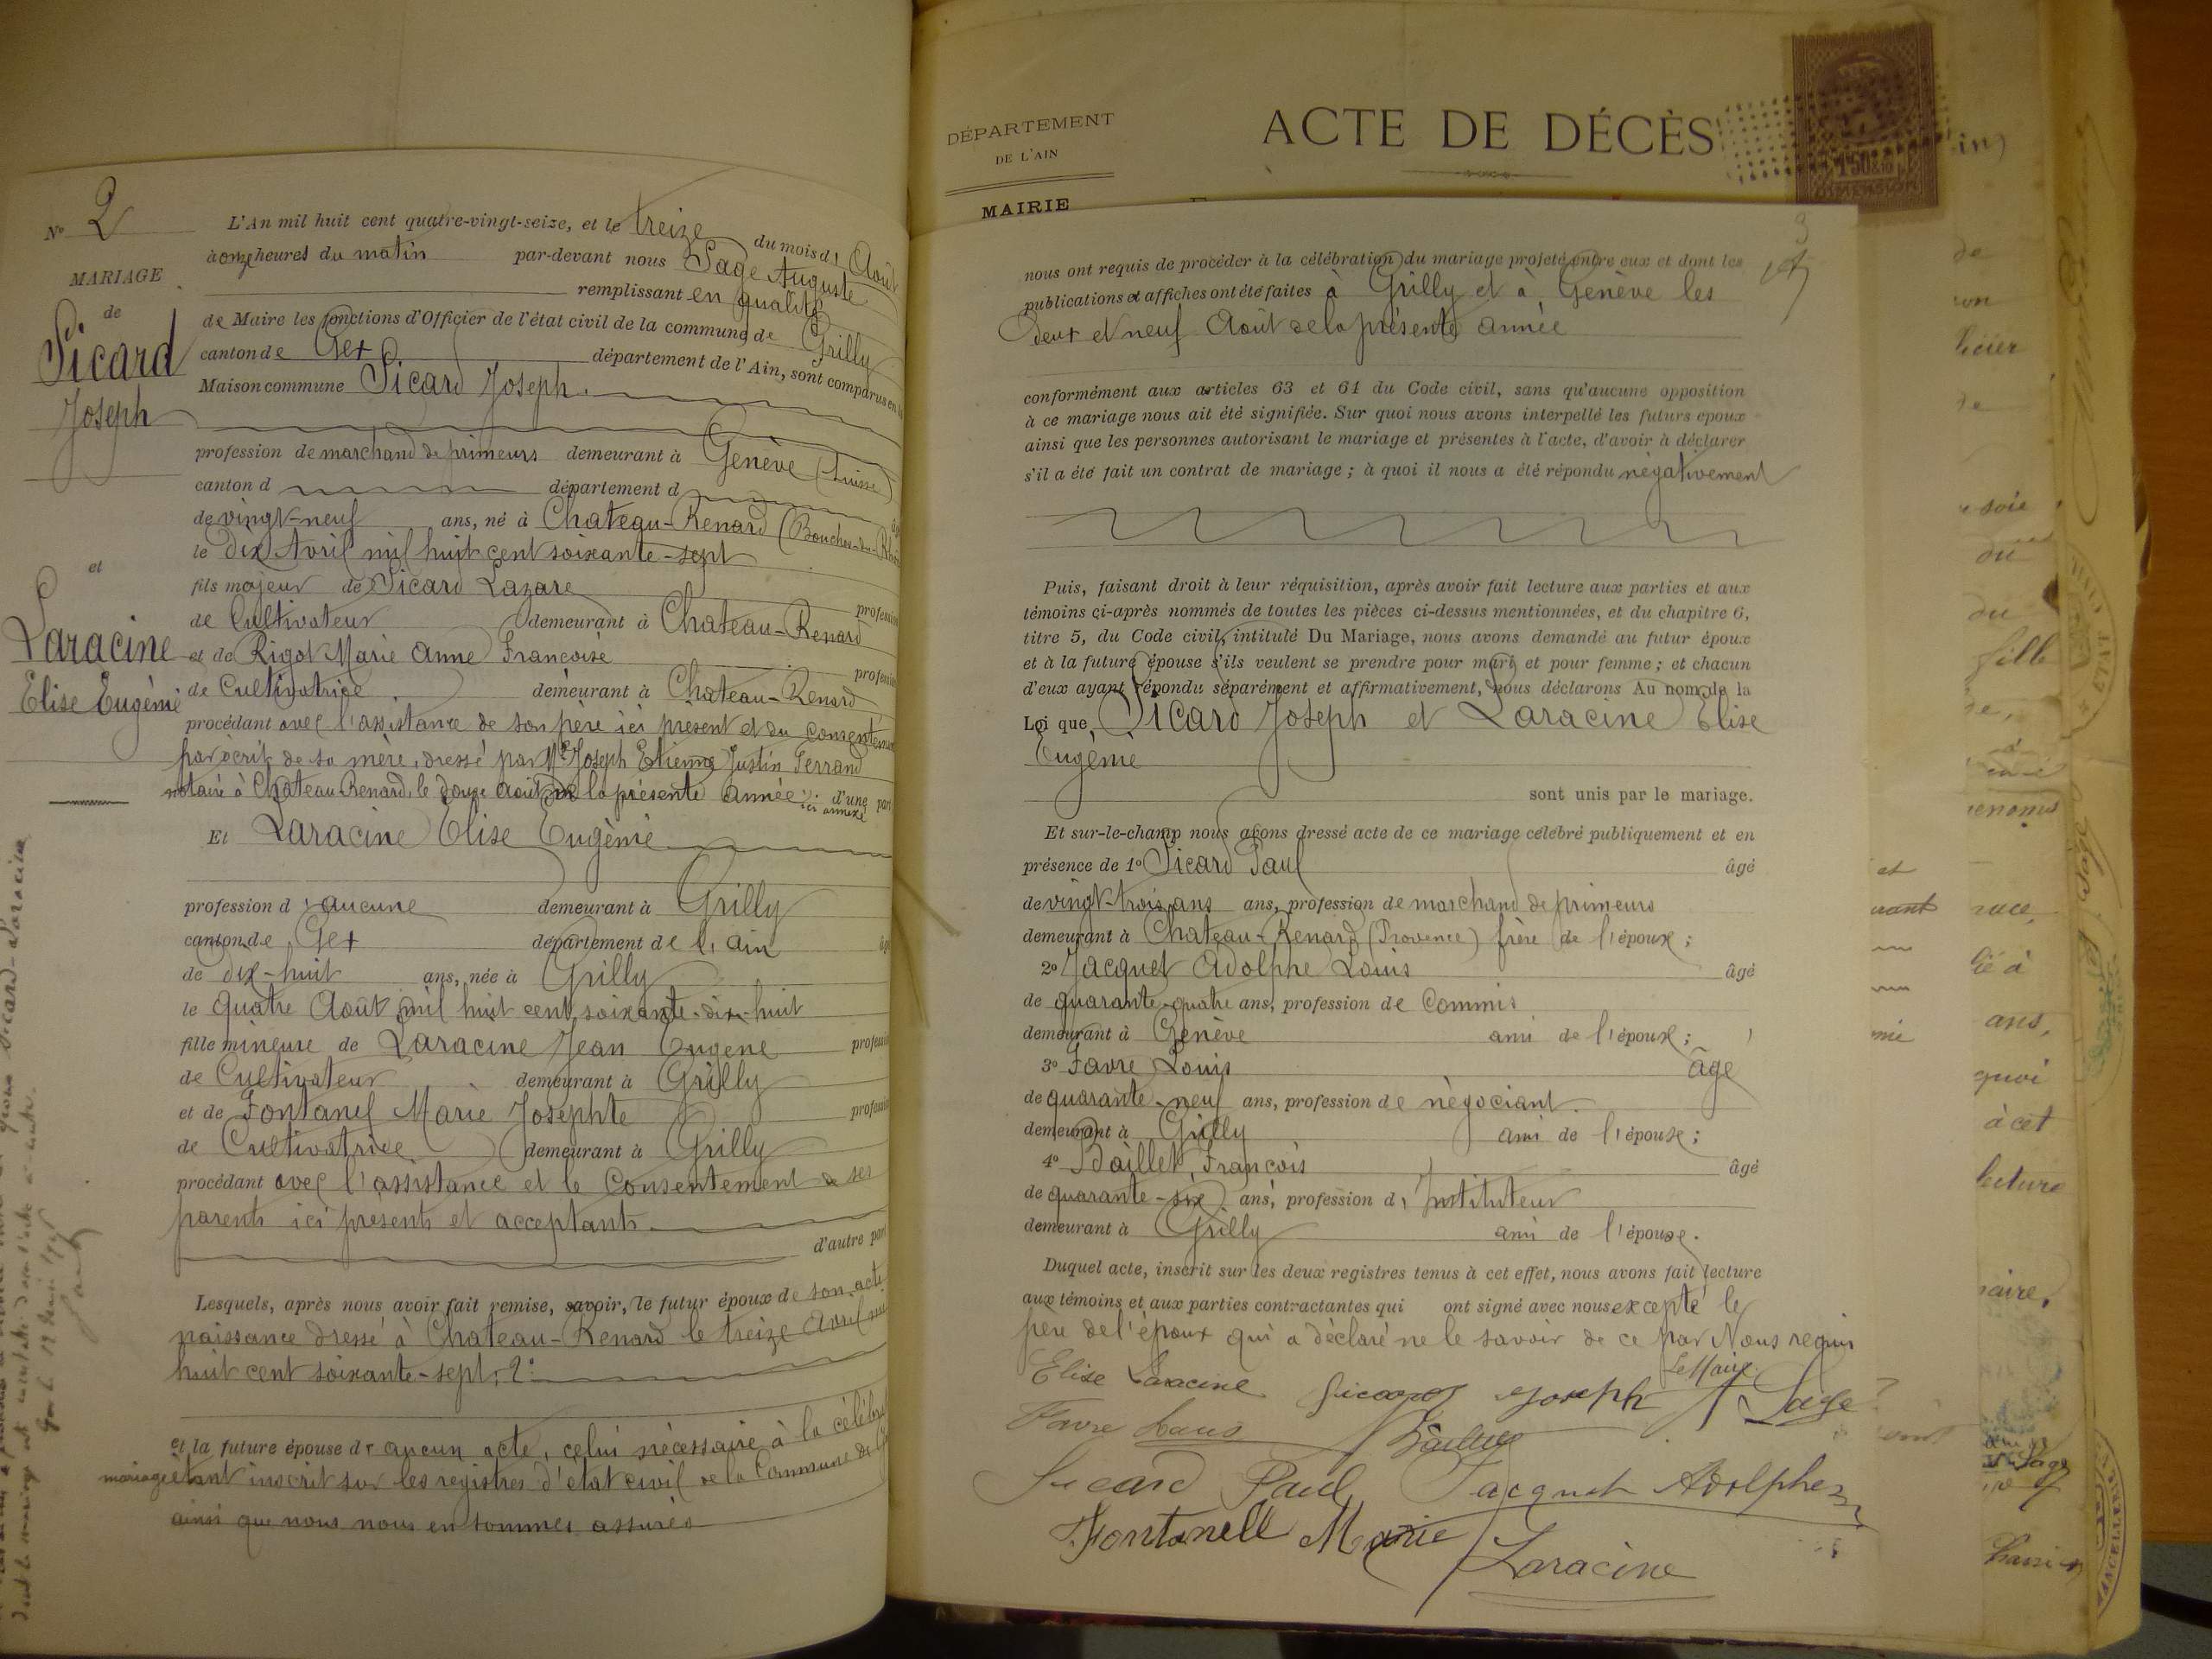 N° 2
MARIAGE
de
Sicard
Joseph
et
Laracine
Elise Eugénie
L'An mil huit cent quatre-vingt-seize, et le treize du mois d' Août
à onze heures du matin par-devant nous Sage Auguste
remplissant en qualité
de Maire les fonctions d'Officier de l'état civil de la commune de Grilly
canton de Gex département de l'Ain, sont comparus en la
Maison commune Sicard Joseph.
profession de marchand de primeurs demeurant à Genève (Suisse)
canton d département d
de vingt-neuf ans, né à Chateau-Renard (Bouches-du-Rhône
le dix Avril mil huit cent soixante-sept
fils majeur de Sicard Lazare profession
de Cultivateur demeurant à Chateau-Renard
et de Rigot Marie Anne Françoise profession
de Cultivatrice demeurant à Chateau-Renard
procédant avec l'assistance de son père ici présent et du consentement
par écrit de sa mère, dressé par Me Joseph Etienne Justin Ferrand
notaire à Chateau-Renard, le douze Août de la présente année ci annexé d'une part
Et Laracine Elise Eugénie
profession d' aucune demeurant à Grilly
canton de Gex département de l'ain
de dix-huit ans, née à Grilly
le quatre Août mil huit cent soixante-dix-huit
fille mineure de Laracine Jean Eugene profession
de Cultivateur demeurant à Grilly
et de Fontanel Marie Josephte profession
de Cultivatrice demeurant à Grilly
procédant avec l'assistance et le Consentement de ses
parents ici présents et acceptants
d'autre part
Lesquels, après nous avoir fait remise, savoir, le futur époux de son acte
naissance dressé à Chateau-Renard le treize Avril mil
huit cent soixante-sept; 2°
et la future épouse d' aucun acte, celui nécessaire à la célébra
mariage étant inscrit sur les registres d'état civil de la Commune de
ainsi que nous nous en sommes assurés
DÉPARTEMENT
DE L'AIN
MAIRIE
ACTE DE DÉCÈS
1f50
DIMENSION
3
nous ont requis de procéder à la célébration du mariage projeté entre eux et dont les
publications et affiches ont été faites à Grilly et à Genève les
deux et neuf Août de la présente année
conformément aux articles 63 et 64 du Code civil, sans qu'aucune opposition
à ce mariage nous ait été signifiée. Sur quoi nous avons interpellé les futurs époux
ainsi que les personnes autorisant le mariage et présentes à l'acte, d'avoir à déclarer
s'il a été fait un contrat de mariage; à quoi il nous a été répondu négativement
Puis, faisant droit à leur réquisition, après avoir fait lecture aux parties et aux
témoins ci-après nommés de toutes les pièces ci-dessus mentionnées, et du chapitre 6,
titre 5, du Code civil, intitulé Du Mariage, nous avons demandé au futur époux
et à la future épouse s'ils veulent se prendre pour mari et pour femme; et chacun
d'eux ayant répondu séparément et affirmativement, nous déclarons Au nom de la
Loi que Sicard Joseph et Laracine Elise
Eugénie
sont unis par le mariage.
Et sur-le-champ nous avons dressé acte de ce mariage célébré publiquement et en
présence de 1° Sicard Paul âgé
de vingt-trois ans ans, profession de marchand de primeurs
demeurant à Chateau-Renard (Provence) frère de l'époux;
2° Jacquet Adolphe Louis âgé
de quarante-quatre ans, profession de Commis
demeurant à Genève ami de l'époux;
3° Favre Louis âgé
de quarante-neuf ans, profession de négociant.
demeurant à Grilly ami de l'épouse;
4° Baillet, François âgé
de quarante-six ans, profession d' Instituteur
demeurant à Grilly ami de l'épouse.
Duquel acte, inscrit sur les deux registres tenus à cet effet, nous avons fait lecture
aux témoins et aux parties contractantes qui ont signé avec nous excepté le
père de l'époux qui a déclaré ne le savoir de ce par Nous requis
Elise Laracine Sicard Joseph Le Maire A Sage
Favre Louis Baillet
Sicard Paul Jacquet Adolphe
Fontanell Marie Laracine